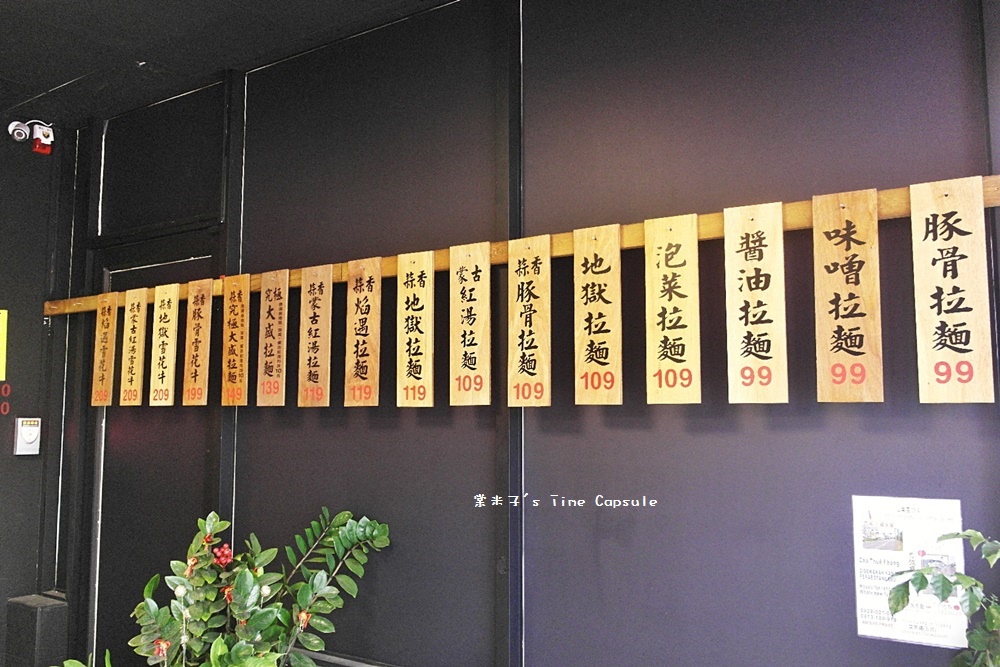 豚骨拉麵
99
味噌拉麵
99
醬油拉麵
99
泡菜拉麵
109
地獄拉麵
109
蒜香
豚骨拉麵
109
蒙古
紅湯拉麵
109
蒜香
地獄拉麵
119
蒜香
焰遇拉麵
119
蒜香
蒙古紅湯拉麵
119
究極
大盛拉麵
139
蒜香
究極大盛拉麵
149
蒜香
豚骨雪花牛
199
蒜香
地獄雪花牛
209
蒜香
蒙古紅湯雪花牛
209
蒜香
焰遇雪花牛
209
棠米子's Time Capsule